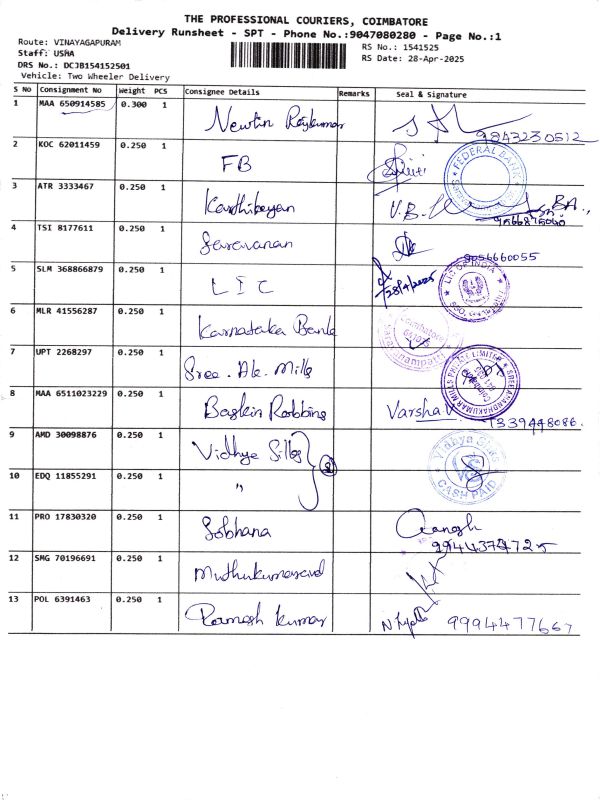 THE PROFESSIONAL COURIERS, COIMBATORE
Delivery Runsheet - SPT - Phone No.:9047080280 - Page No.:1
Route: VINAYAGAPURAM
RS No.: 1541525
Staff: USHA
RS Date: 28-Apr-2025
DRS No.: DCJB154152501
Vehicle: Two Wheeler Delivery
S No Consignment No Weight PCS Consignee Details Remarks Seal & Signature
1 MAA 650914585 0.300 1 Newtin Rajkumar 9843230512
2 KOC 62011459 0.250 1 FB FEDERAL BANK
3 ATR 3333467 0.250 1 Karthikeyan
4 TSI 8177611 0.250 1 Saravanan 9056660055
5 SLM 368866879 0.250 1 LIC 28/4/2025 LIC OF INDIA
6 MLR 41556287 0.250 1 Karnataka Bank Coimbatore
7 UPT 2268297 0.250 1 Sree. Ak. Mills
8 MAA 6511023229 0.250 1 Baskin Robbins Varsha.V 7339448086.
9 AMD 30098876 0.250 1 Vidhya Silks 2 Vidhya Silks CASH PAID
10 EDQ 11855291 0.250 1 "
11 PRO 17830320 0.250 1 Sobhana
12 SMG 70196691 0.250 1 Muthukumarasamy
13 POL 6391463 0.250 1 Ramesh Kumar 9994477667